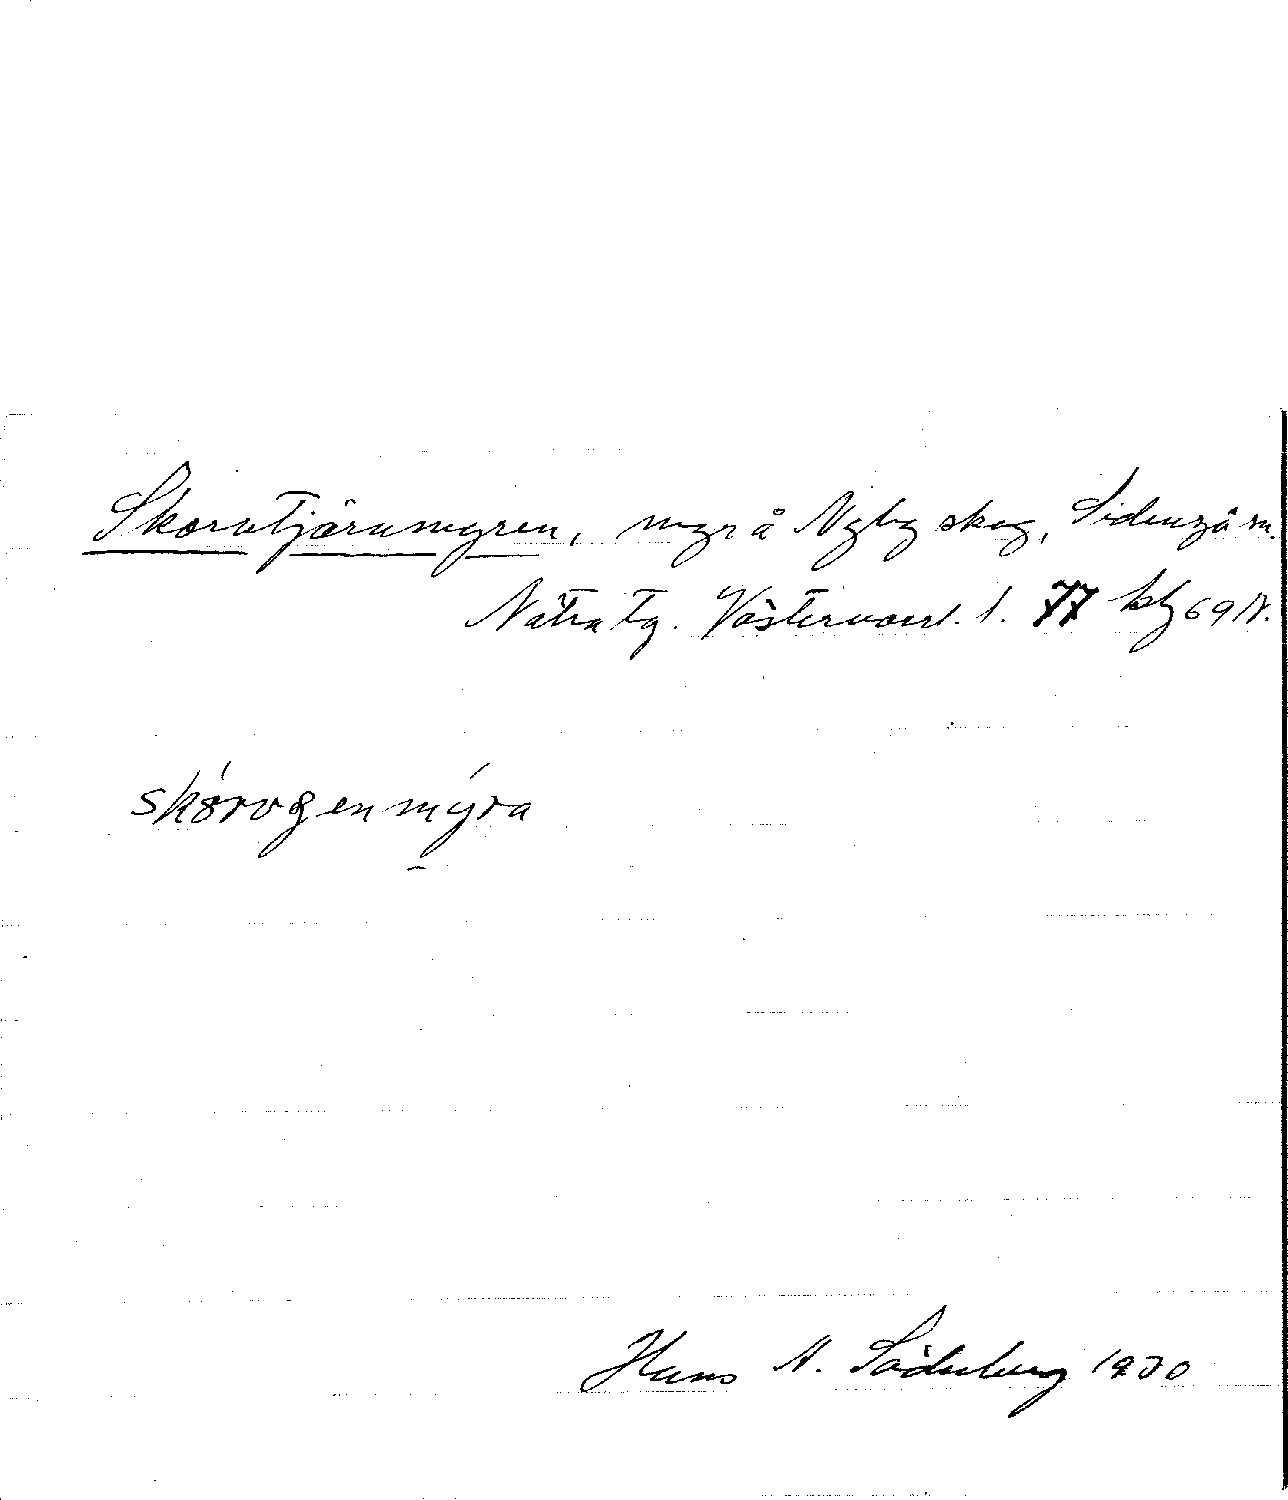 Skorvtjärnmyren, myr å Nyby skog, Sidensjö sn.
Nätra tg. Västernorrl. l. 77 kbl 69 N.
skórvgenmýra
Hans A. Söderberg 1930